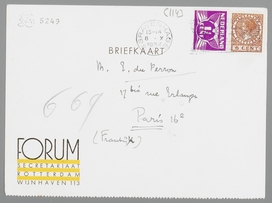 [114]
9249
NEDERLAND
7½
6 CENT
BRIEFKAART
M. E. du Perron
17 bis rue Erlanger
Paris 16e
(Frankrijk)
669
FORUM
SECRETARIAAT
ROTTERDAM
WIJNHAVEN 113